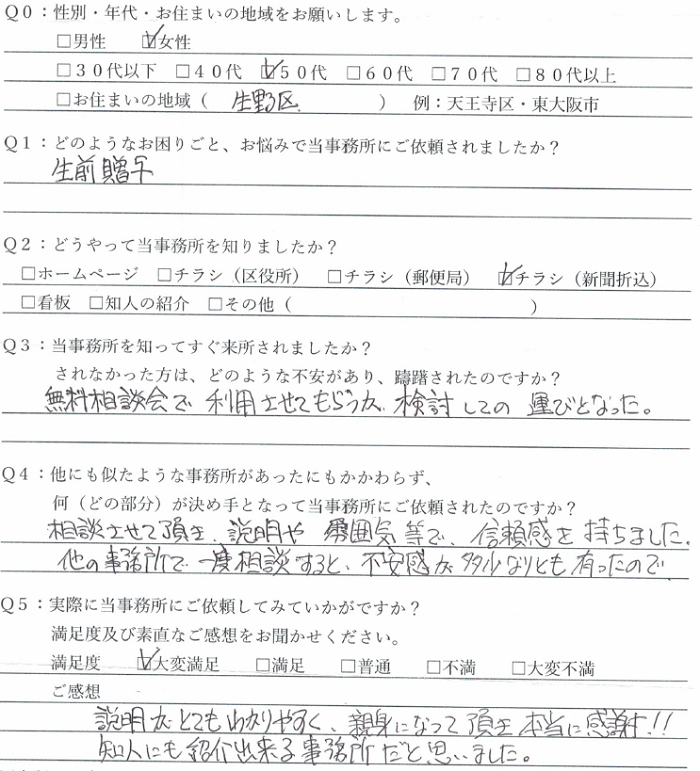 Q0:性別・年代・お住まいの地域をお願いします。
□男性 ☑女性
□30代以下 □40代 ☑50代 □60代 □70代 □80代以上
□お住まいの地域( 生野区 ) 例:天王寺区・東大阪市
Q1:どのようなお困りごと、お悩みで当事務所にご依頼されましたか?
生前贈与
Q2:どうやって当事務所を知りましたか?
□ホームページ □チラシ(区役所) □チラシ(郵便局) ☑チラシ(新聞折込)
□看板 □知人の紹介 □その他( )
Q3:当事務所を知ってすぐ来所されましたか?
されなかった方は、どのような不安があり、躊躇されたのですか?
無料相談会で 利用させてもらうか 検討しての 運びとなった。
Q4:他にも似たような事務所があったにもかかわらず、
何(どの部分)が決め手となって当事務所にご依頼されたのですか?
相談させて頂き、説明や 雰囲気等で、信頼感を 持ちました。
他の事務所で 一度相談すると、不安感が 多少なりとも 有ったので
Q5:実際に当事務所にご依頼してみていかがですか?
満足度及び素直なご感想をお聞かせください。
満足度 ☑大変満足 □満足 □普通 □不満 □大変不満
ご感想
説明が とても わかりやすく、親身になって 頂き 本当に感謝!!
知人にも紹介出来る事務所だと思いました。